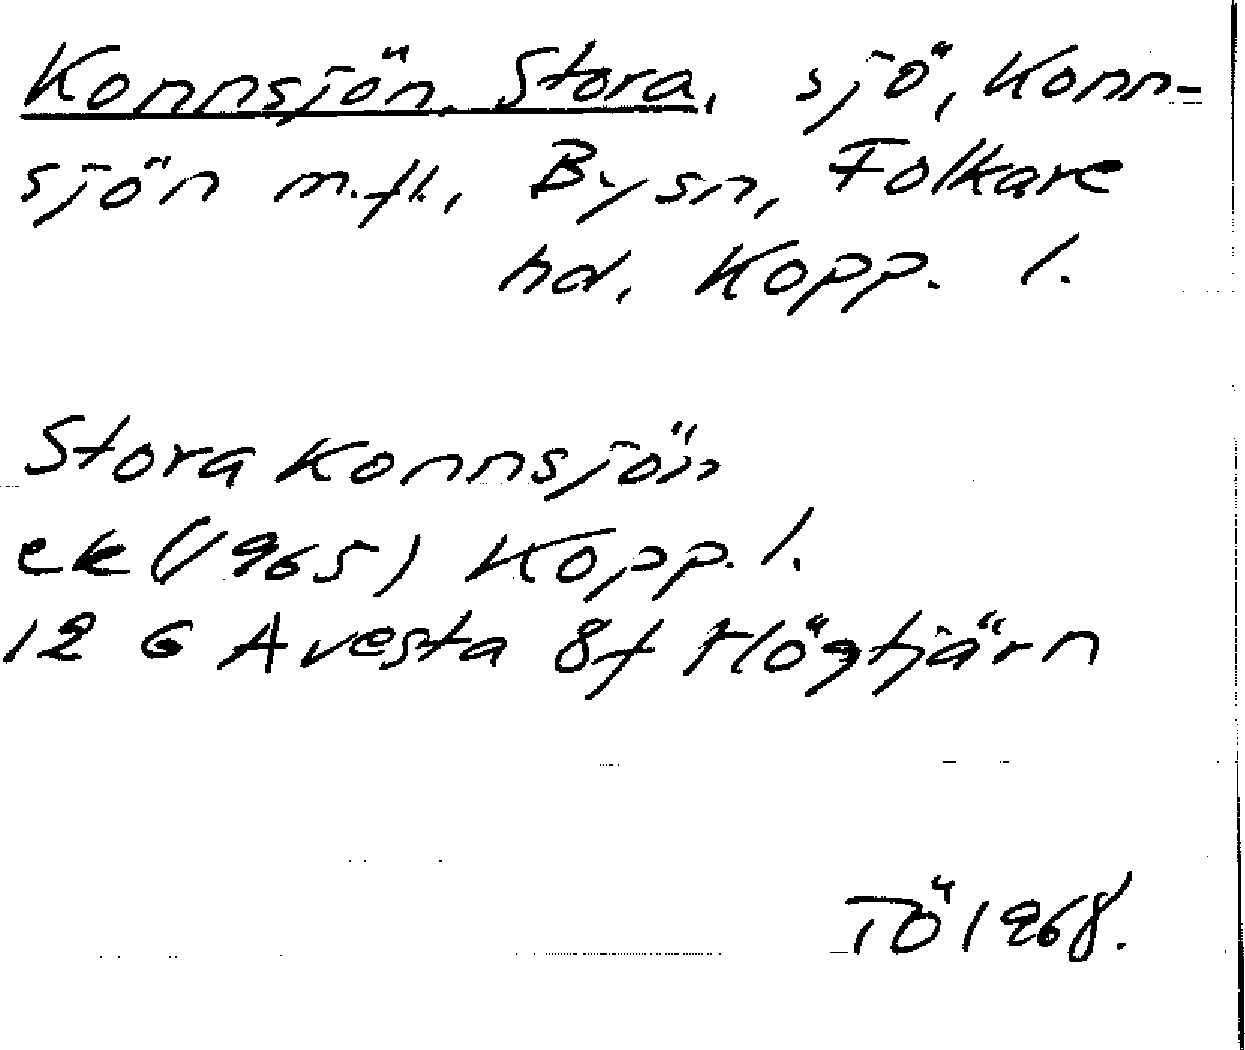 Konnsjön, Stora, sjö, Konn-
sjön m.fl., By sn, Folkare
hd, Kopp. l.
Stora Konnsjön
ek (1965) Kopp. l.
12 G Avesta 8f Högtjärn
TÖ 1968.